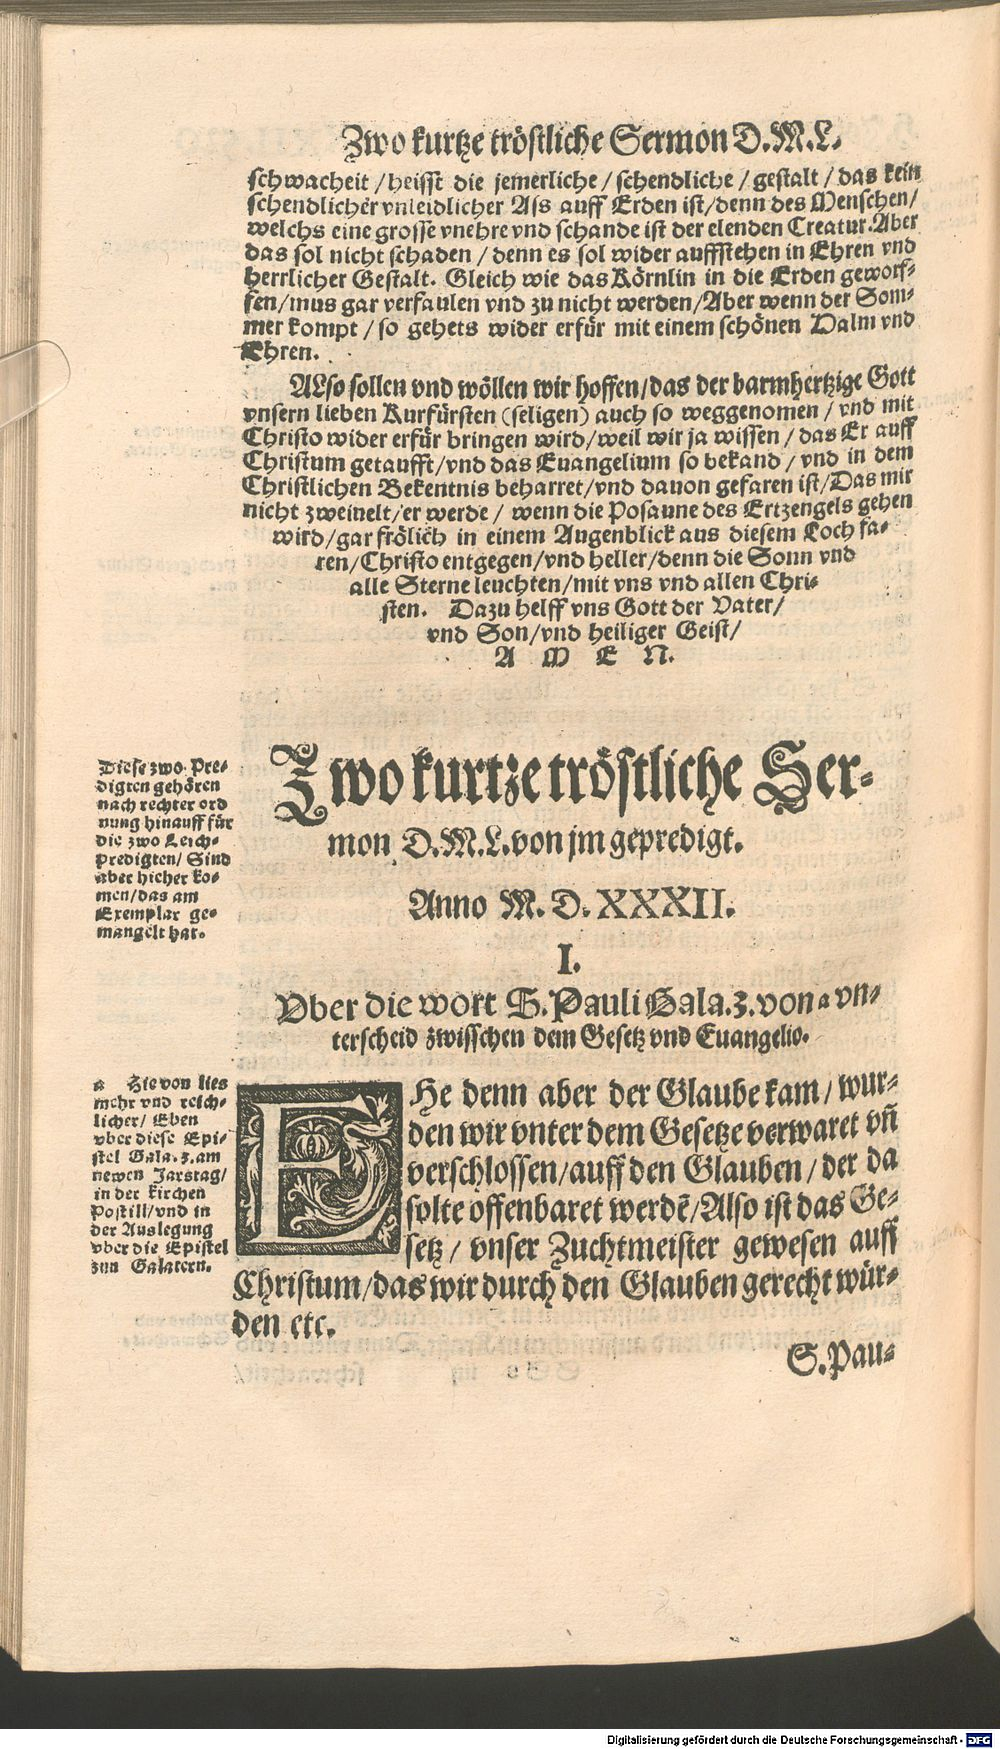 Zwo kurtze tröstliche Sermon D.M.L.
schwacheit / heisst die jemerliche / schendliche / gestalt / das kein
schendlicher vnleidlicher Ass auff Erden ist / denn des Menschen /
welchs eine grosse vnehre vnd schande ist der elenden Creatur. Aber
das sol nicht schaden / denn es sol wider aufferstehen in Ehren vnd
herrlicher Gestalt. Gleich wie das Körnlin in die Erden geworf-
fen / mus gar verfaulen vnd zu nicht werden / Aber wenn der Som-
mer kompt / so gehets wider erfür mit einem schönen Halm vnd
Ehren.
ALso sollen vnd wöllen wir hoffen / das der barmhertzige Gott
vnsern lieben Kurfürsten (seligen) auch so weggenomen / vnd mit
Christo wider erfür bringen wird / weil wir ja wissen / das Er auff
Christum getaufft / vnd das Euangelium so bekand / vnd in dem
Christlichen Bekentnis beharret / vnd dauon gefaren ist / Das mir
nicht zweiuelt / er werde / wenn die Posaune des Ertzengels gehen
wird / gar frölich in einem Augenblick aus diesem Loch fa-
ren / Christo entgegen / vnd heller / denn die Sonn vnd
alle Sterne leuchten / mit vns vnd allen Chri-
sten. Dazu helff vns Gott der Vater /
vnd Son / vnd heiliger Geist /
A M E N.
Diese zwo Pre-
digten gehören
nach rechter ord
nung hinauff für
die zwo Leich-
predigten / Sind
aber hieher ko-
men / das am
Exemplar ge-
mangelt hat.
Zwo kurtze tröstliche Ser-
mon D.M.L. von jm gepredigt.
Anno M. D. XXXII.
I.
Vber die wort S. Pauli Gala. 3. von a vn-
terscheid zwisschen dem Gesetz vnd Euangelio.
a Hie von lies
mehr vnd reich-
licher / Eben
vber diese Epi-
stel Gala. 3. am
newen Jarstag /
in der Kirchen
Postill / vnd in
der Auslegung
vber die Epistel
zun Galatern.
EHe denn aber der Glaube kam / wur-
den wir vnter dem Gesetze verwaret vñ
verschlossen / auff den Glauben / der da
solte offenbaret werdẽ / Also ist das Ge-
setz / vnser Zuchtmeister gewesen auff
Christum / das wir durch den Glauben gerecht wür-
den etc.
S. Pau-
Digitalisierung gefördert durch die Deutsche Forschungsgemeinschaft - DFG